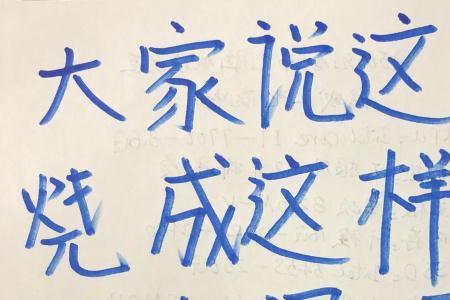 大家说这
烧成这样